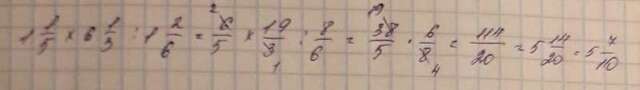 1 1/5 × 6 1/3 : 1 2/6 = 6/5 × 19/3 : 8/6 = 38/5 · 6/8 = 114/20 = 5 14/20 = 5 7/10